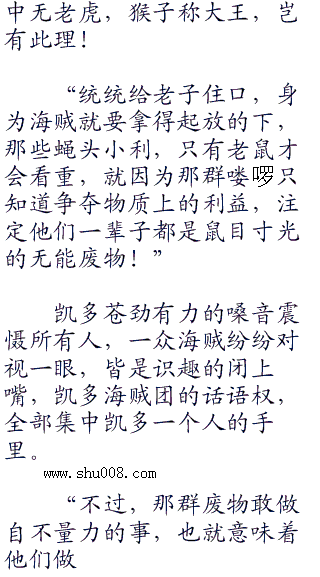 中无老虎，猴子称大王，岂
有此理！
“统统给老子住口，身
为海贼就要拿得起放的下，
那些蝇头小利，只有老鼠才
会看重，就因为那群喽啰只
知道争夺物质上的利益，注
定他们一辈子都是鼠目寸光
的无能废物！”
凯多苍劲有力的嗓音震
慑所有人，一众海贼纷纷对
视一眼，皆是识趣的闭上
嘴，凯多海贼团的话语权，
全部集中凯多一个人的手
里。
www.shu008.com
“不过，那群废物敢做
自不量力的事，也就意味着
他们做